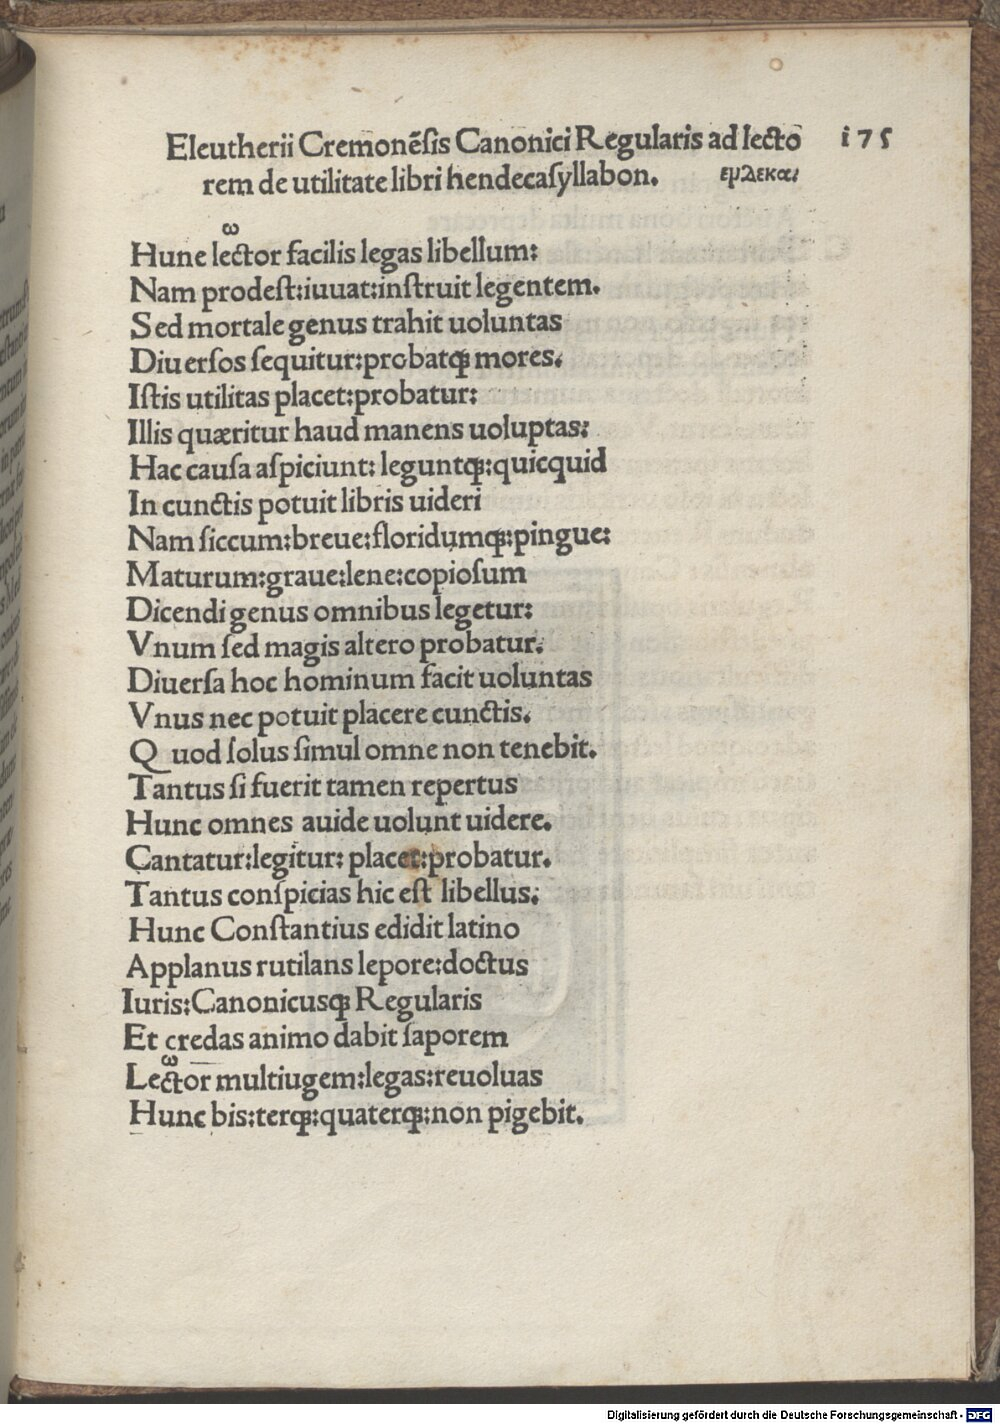 Eleutherii Cremonēſis Canonici Regularis ad lecto
175
rem de utilitate libri hendecaſyllabon.
ω
Hunc lector facilis legas libellum:
Nam prodeſt:iuuat:inſtruit legentem.
Sed mortale genus trahit uoluntas
Diuerſos ſequitur:probatqꝫ mores.
Iſtis utilitas placet:probatur:
Illis quæritur haud manens uoluptas:
Hac cauſa aſpiciunt: leguntqꝫ:quicquid
In cunctis potuit libris uideri
Nam ſiccum:breue:floridumqꝫ:pingue:
Maturum:graue:lene:copioſum
Dicendi genus omnibus legetur:
Vnum ſed magis altero probatur.
Diuerſa hoc hominum facit uoluntas
Vnus nec potuit placere cunctis.
Q uod ſolus ſimul omne non tenebit.
Tantus ſi fuerit tamen repertus
Hunc omnes auide uolunt uidere.
Cantatur:legitur: placet:probatur.
Tantus conſpicias hic eſt libellus:
Hunc Conſtantius edidit latino
Applanus rutilans lepore:doctus
Iuris:Canonicusqꝫ Regularis
Et credas animo dabit ſaporem
ω
Lector multiugem:legas:reuoluas
Hunc bis:terqꝫ:quaterqꝫ:non pigebit.
Digitalisierung gefördert durch die Deutsche Forschungsgemeinschaft - DFG